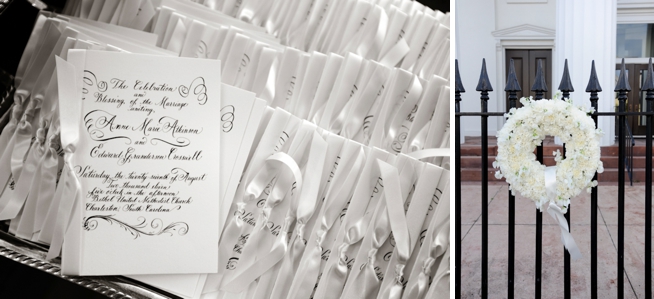 The Celebration
and
Blessing of the Marriage
uniting
Anne Marie Atkinson
and
Edward Grunderson Creswell
Saturday, the twenty-ninth of August
Two thousand eleven
five o'clock in the afternoon
Bethel United Methodist Church
Charleston, South Carolina